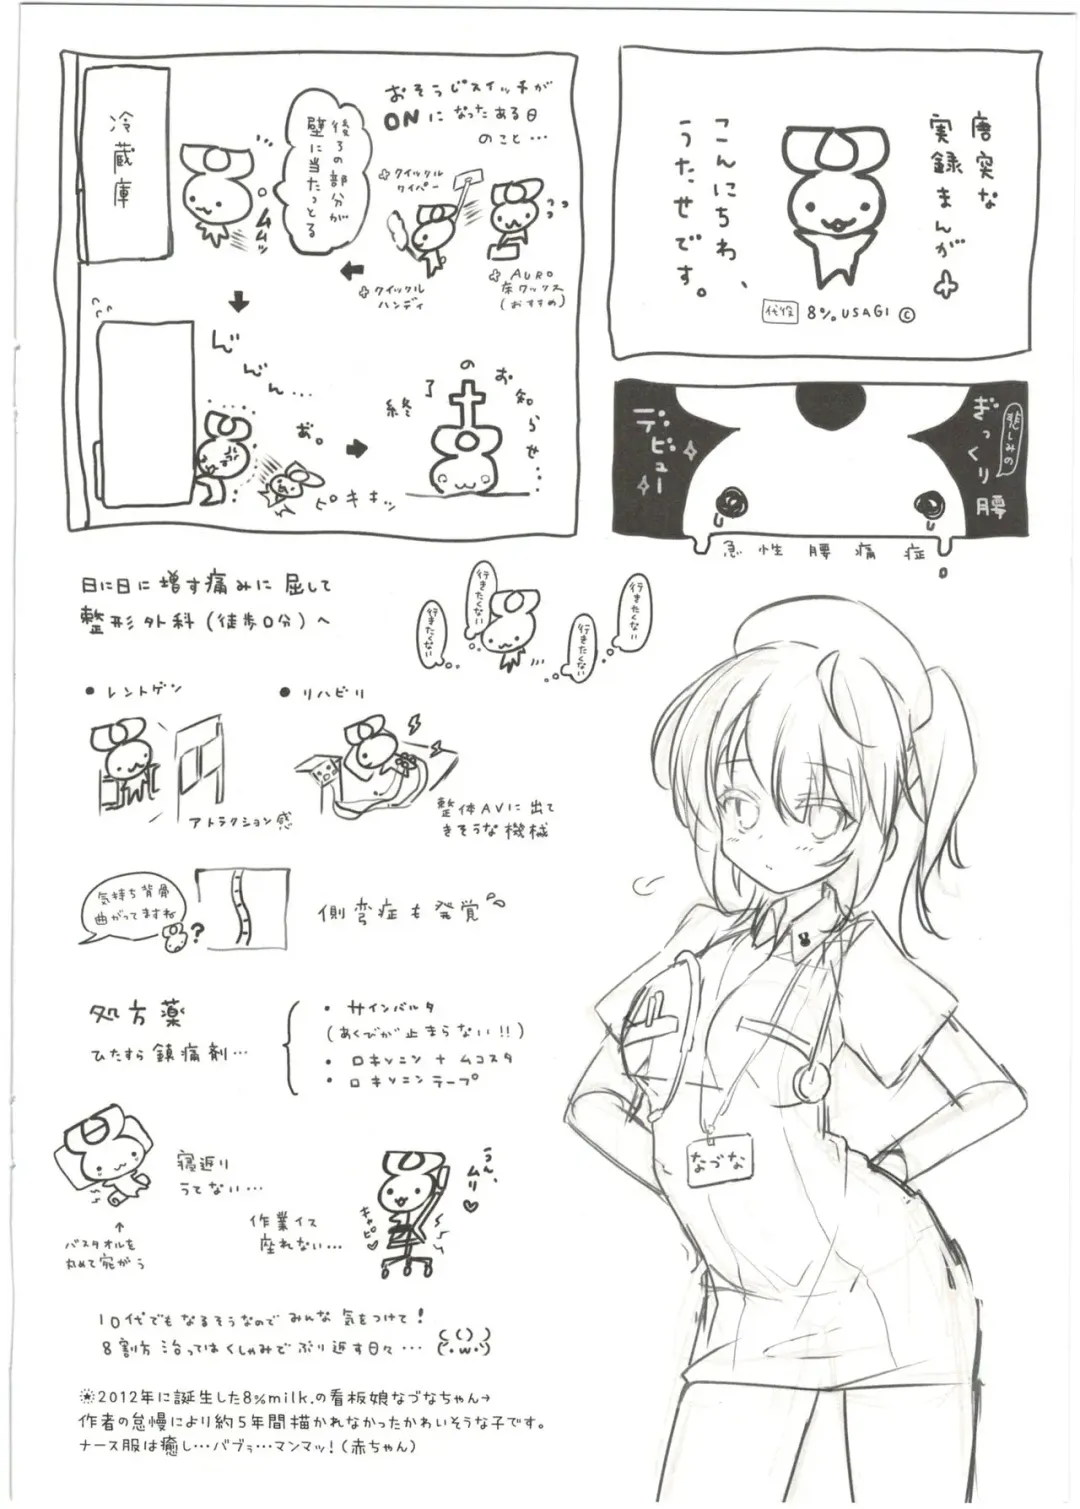 唐突な
実録まんが
こんにちわ、
うたせです。
代役 8% USAGI ©
おそうじスイッチが
ONになったある日
のこと…
クイックル
ワイパー
クイックル
ハンディ
AURO
床ワックス
(おすすめ)
後ろの部分が
壁に当たっとる
ムムッ
冷蔵庫
んんん…
お。
ピキキッ
終了のお知らせ…
悲しみの
ぎっくり腰
デビュー
急性腰痛症
日に日に増す痛みに屈して
整形外科(徒歩0分)へ
行きたくない
行きたくない
行きたくない
行きたくない
• レントゲン
アトラクション感
• リハビリ
整体AVに出て
きそうな機械
気持ち背骨
曲がってますね
?
側弯症も発覚
処方薬
ひたすら鎮痛剤…
• サインバルタ
(あくびが止まらない!!)
• ロキソニン + ムコスタ
• ロキソニンテープ
寝返り
うてない…
↑
バスタオルを
丸めて宛がう
作業イス
座れない…
キャピ♡
うん、
ムリ♡
なづな
10代でもなるそうなのでみんな気をつけて!
8割方治ってはくしゃみでぶり返す日々…
※2012年に誕生した8%milk.の看板娘なづなちゃん→
作者の怠慢により約5年間描かれなかったかわいそうな子です。
ナース服は癒し…バブゥ…マンマッ!(赤ちゃん)